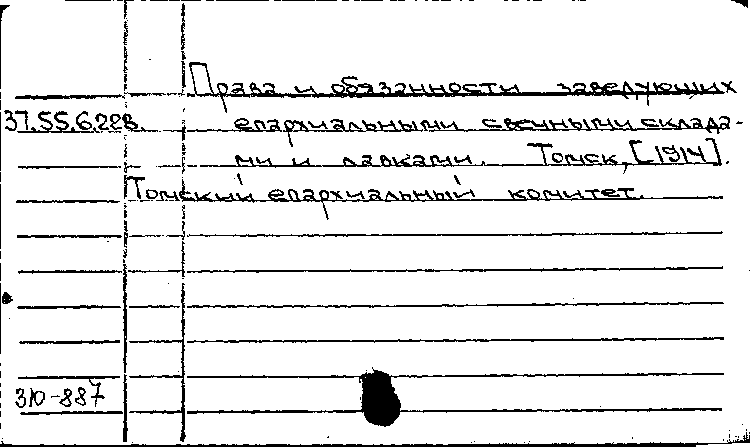 Права и обязанности заведующих
37.55.6.228. епархиальными свечными склада-
ми и лавками. Томск, [1914].
Томский епархиальный комитет.
310-887